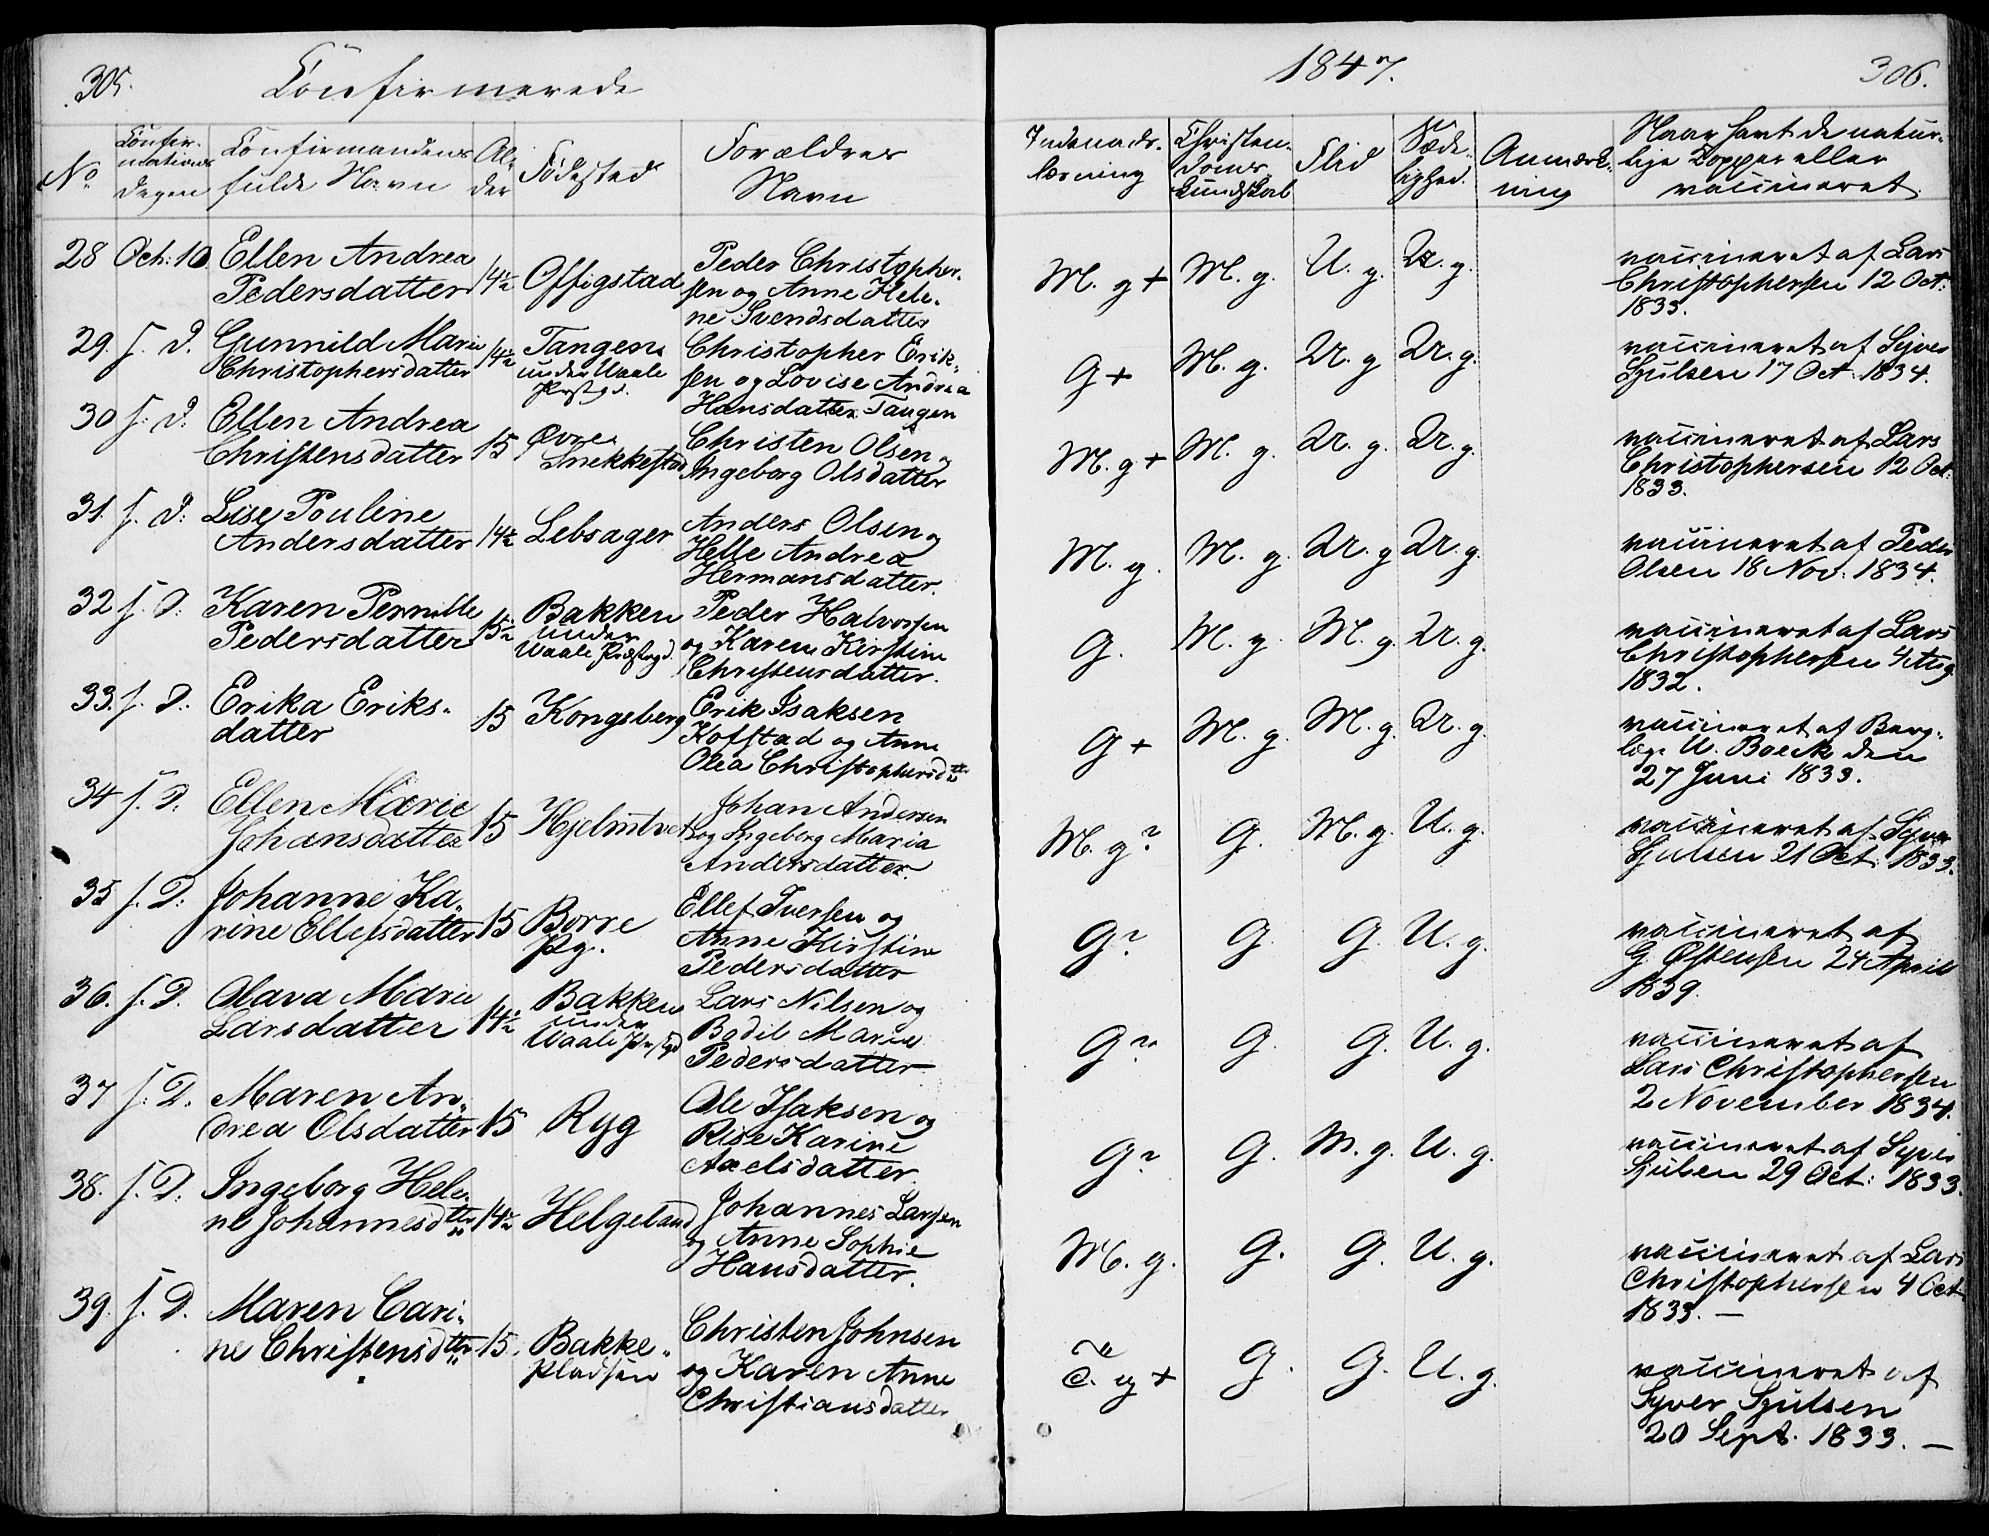 305.
Confirmerede
No
Confir-
mations
Dagen
Confirmandens
fulde Navn
Al-
der
Fødested
Forældres
Navn
28 Oct: 10 Ellen Andrea
Pedersdatter
14½ Offigstad
Peder Christopher-
sen og Anne Hele-
ne Svendsdatter
29. s. D. Gunnild Marie
Christophersdatter
14½ Tangen
under Waale
Prstgd.
Christopher Erik-
sen og Lovise Andrea
Hansdatter Tangen
30 s. D. Ellen Andrea
Christensdatter
15 Øvre
Snekkestad
Christen Olsen og
Ingeborg Olsdatter
31. s. D. Lise Pouline
Andersdatter
14½ Lebsager
Anders Olsen og
Helle Andrea
Hermansdatter.
32 s. D. Karen Pernille
Pedersdatter
15½ Bakken
under
Waale Præstegd.
Peder Halvorsen
og Karen Kirstine
Christensdatter.
33. s. D. Erika Eriks-
datter
15 Kongsberg
Erik Isaksen
Kofstad og Anne
Olea Christophersdtr
34 s. D. Ellen Marie
Johansdatter
15 Hjelmtvet
Johan Andersen
og Ingeborg Maria
Andersdatter.
35 s. D. Johanne Ka-
rine Ellefsdatter
15 Borre
Pg.
Ellef Iversen og
Anne Kirstine
Pedersdatter
36. s. D. Olava Marie
Larsdatter
14½ Bakken
under
Waale Prstgd
Lars Nilsen og
Bodil Marie
Pedersdatter
37 s. D. Maren An-
drea Olsdatter
15 Ryg
Ole Isaksen og
Rise Karine
Axelsdatter
38. s. D. Ingeborg Hele-
ne Johannesdtter
14½ Helgeland
Johannes Larsen
og Anne Sophie
Hansdatter.
39. s. D. Maren Cari-
ne Christensdtter
15. Bakke-
pladsen
Christen Johnsen
og Karen Anne
Christiansdatter
1847.
306.
Indenads-
læsning
Christen-
doms
Kundskab
Flid
Sæde-
lighed.
Anmærk-
ning
Naar havt de natur-
lige Kopper eller
vaccineret.
M. g + M. g. U. g. U. g.
vaccineret af Lars
Christophersen 12 Oct:
1833.
G + M. g. U. g U. g.
vaccineret af Syver
Sjulsen 17 Oct. 1834.
M. g + M. g. U. g. U. g.
vaccineret af Lars
Christophersen 12 Oct:
1833.
M. g. M. g. U. g U. g.
vaccineret af Peder
Olsen 18 Nov: 1834.
G. M. g. M. g. U. g.
vaccineret af Lars
Christophersen 4 Aug
1832.
G + M. g. M. g. U. g.
vaccineret af Berg-
læge U. Boeck den
27 Juni 1833.
M. g? G. M. g. U. g.
vaccineret af Syver
Sjulsen 21 Oct: 1833.
G? G. G. U. g.
vaccineret af
G. Østensen 24 April
1839.
G? G. G. U. g.
vaccineret af
Lars Christophersen
2 November 1834.
G? G. M. g. U. g.
vaccineret af Syver
Sjulsen 29 Oct: 1833.
M. g. G. G. U. g.
vaccineret af Lars
Christophersen 4 Oct
1833. —
T. g + G. G. U. g.
vaccineret af
Syver Sjulsen
20 Sept. 1833. —